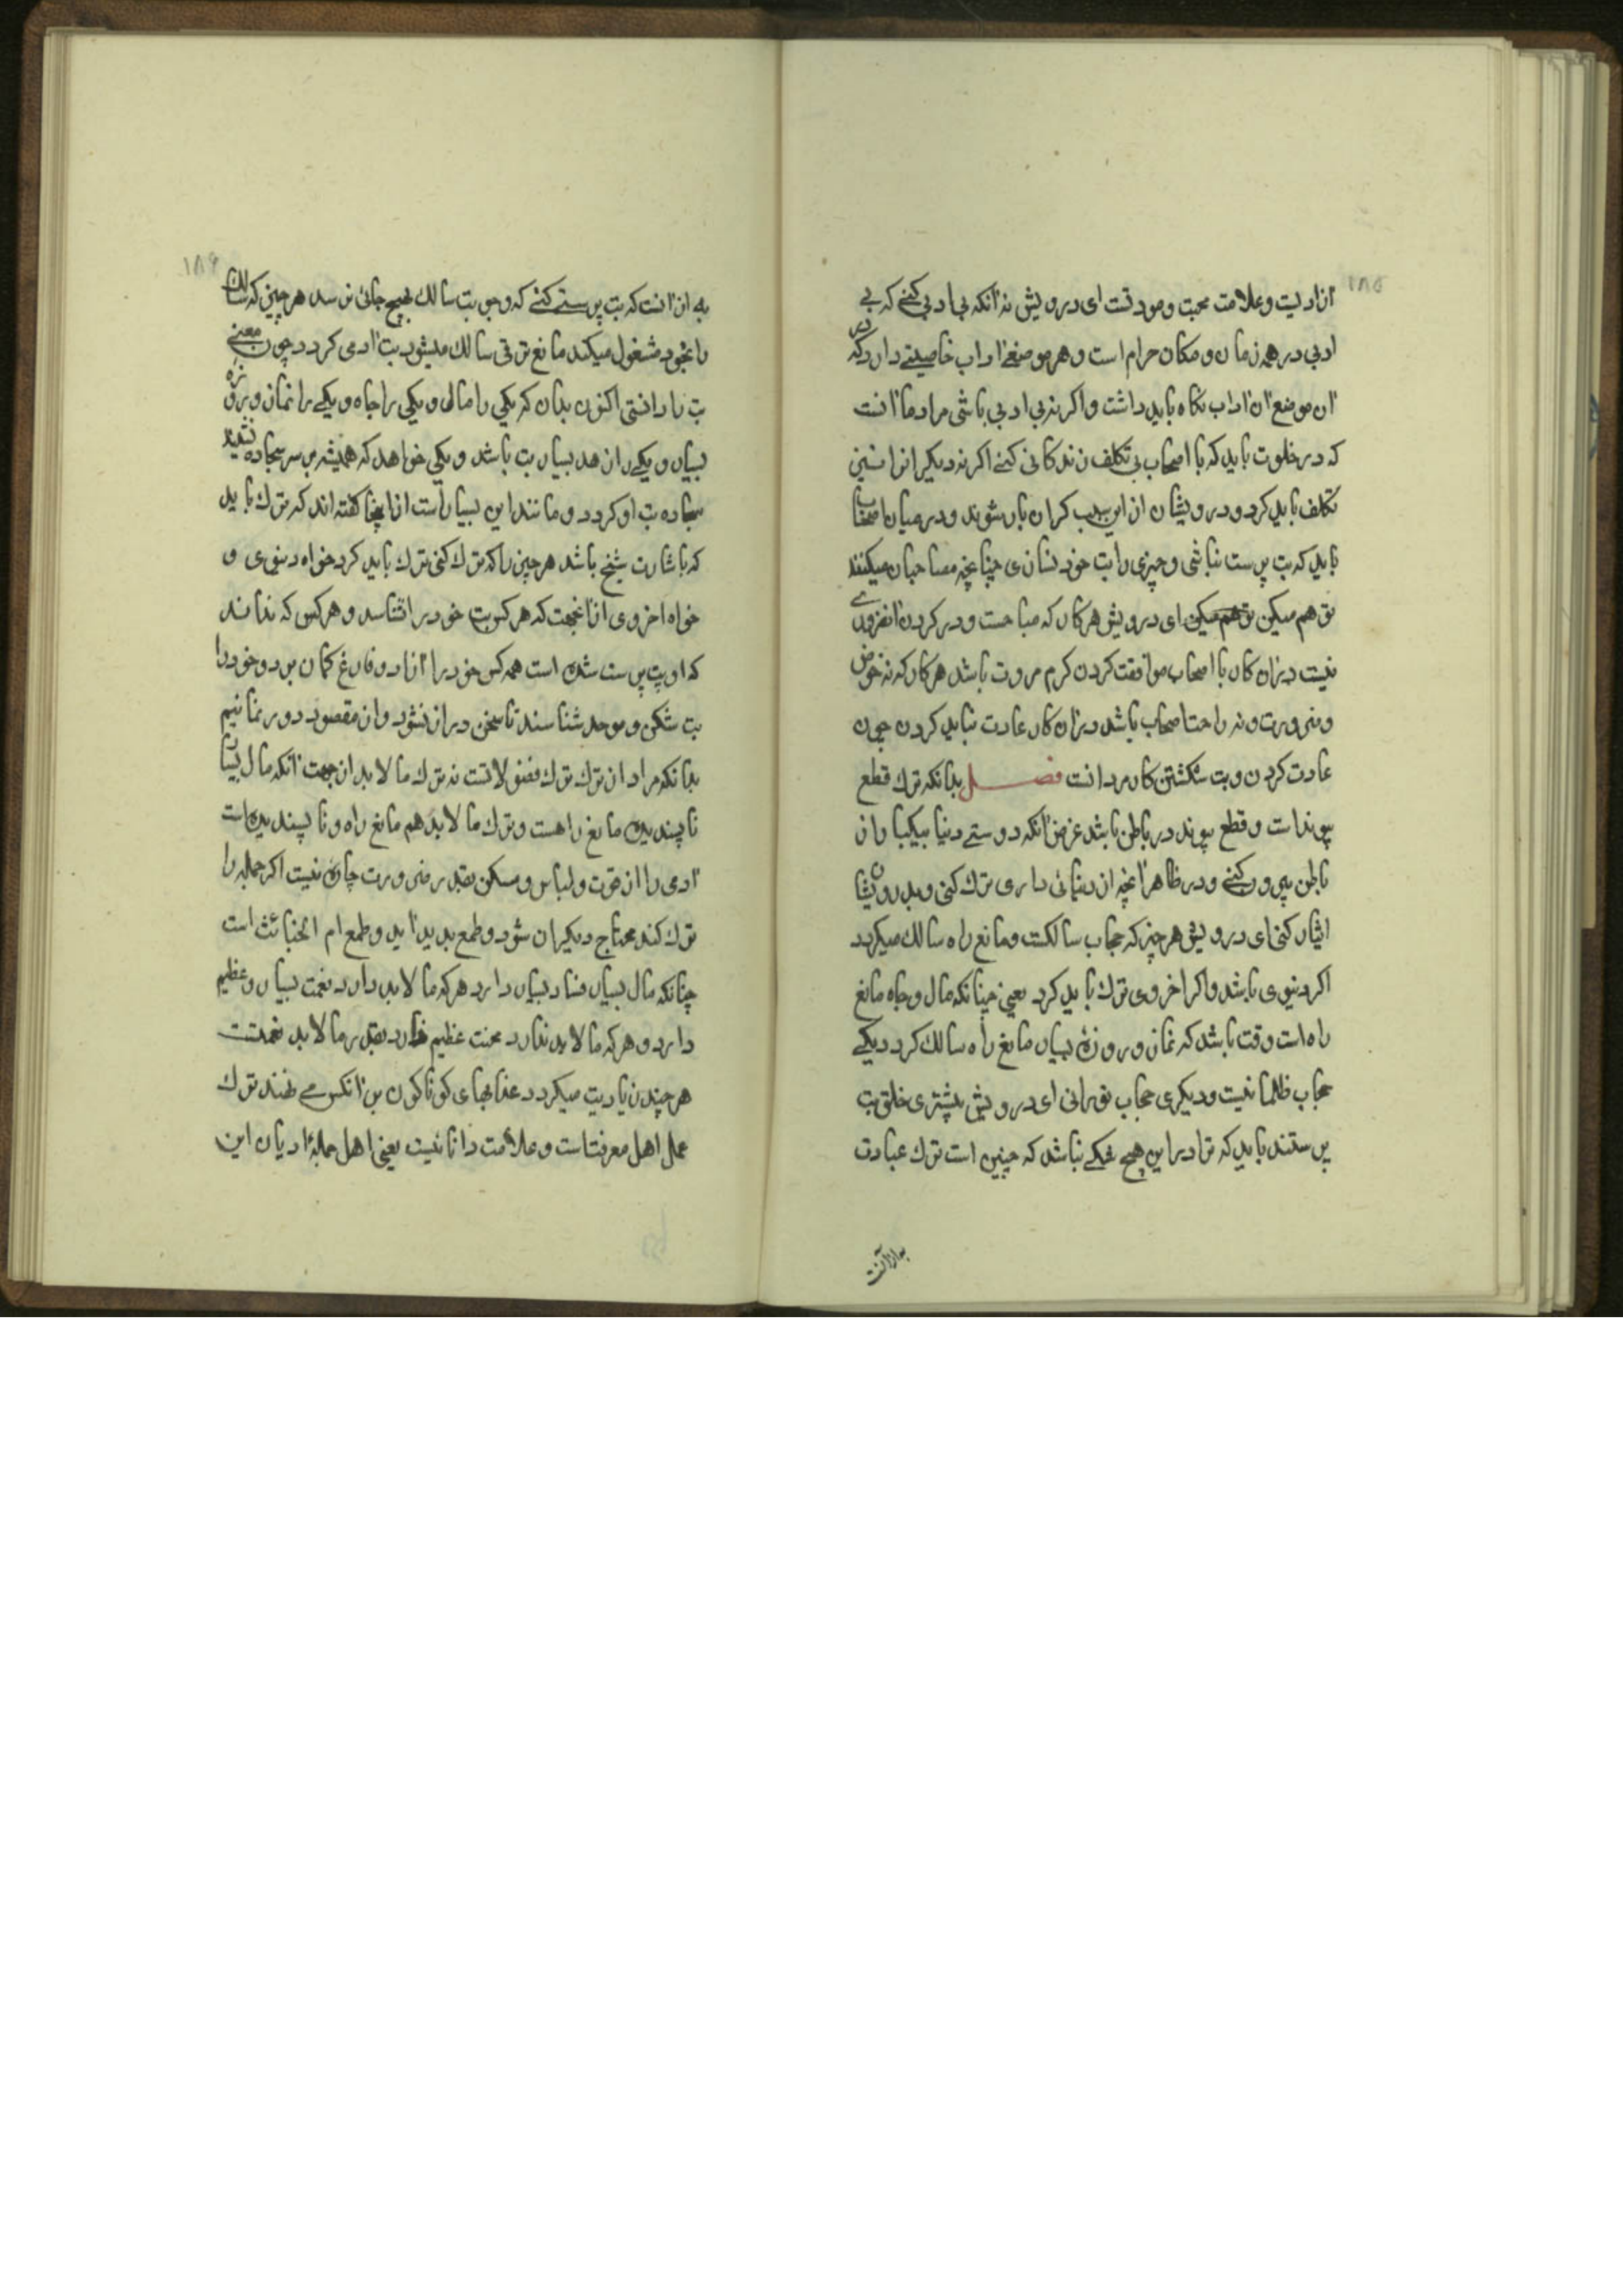 ۱۸۵
ازادیست و علامت محبت و مودتست ای درویش نه انکه بی ادبی کنے که بے
ادبی در همه زمان و مکان حرام است و هر موضعے اداب خاصیتے دارد که در
ان موضع ان اداب نکاه باید داشت و اکر نه بی ادبی باشی مراد ما انست
که در خلوت باید که با اصحاب بی تکلف زندکانی کنے اکر نه دیکیرانرا نیز
تکلف باید کرد و درویشان از این سبب کران بار شوند و در میان اصحاب
باید که بت پرست نباشی و چیزی را بت خود نسازی چنانچه مصاحبان میکنند
تو هم میکن تو هم میکن ای درویش هر کار که مباحست و در کردن ان ضروری
نیست در ان کار با اصحاب موافقت کردن کرم مروت باشد هر کار که نه خوض
و ضرورت و نه راحت اصحاب باشد در ان کار عادت نباید کردن چون
عادت کردن و بت شکستن کار مردانست فصــل بدانکه ترك قطع
پیوند است و قطع پیوند در باطن باشد غرض انکه دوستے دنیا بیکبار از
باطن بیرون کنے و در ظاهر انچه از دنیائی داری ترك کنی و بدرویشان
ایثار کنی ای درویش هر چیز که حجاب سالکست و مانع راه سالك میکردد
اکر دنیوی باشد و اکر اخروی ترك باید کرد یعنی چنانکه مال و جاه مانع
راه است وقت باشد که نماز و روزه بسیار مانع راه سالك کردد یکے
حجاب ظلمانیست و دیکری حجاب نورانی ای درویش بیشتری خلق بت
پرستند باید که ترا در این هیچ شکے نباشد که چنین است ترك عبادت
به از انست
۱۸۶
به از انست که بت پرستے کنے که وجو بت سالك بهیچ جائی نرسد هر چیز که سالك
را بخود مشغول میکند مانع ترقی سالك میشود بت ادمی کردد چون معنے
بت را دانستی اکنون بدان که یکی را مالی و یکی را جاه و یکے را نماز و روزه
بسیار و یکے را زهد بسیار بت باشد و یکی خواهد که همیشه بر سر سجاده نشیند
سجاده بت او کردد و مانند این بسیار است از اینجا کفته اند که ترك باید
که باشارت شیخ باشد هر چیز را که ترك کنی ترك باید کرد خواه دنیوی و
خواه اخروی از انجهت که هر کس بت خود را نشناسد و هر کس که نداند
که او بت پرست شده است همه کس خود را ازاد و فارغ کمان برد و خود را
بت شکن و موحد شناسند تا سخن دراز نشود و از مقصود دور نمانیم
بدانکه مراد از ترك ترك فضولاتست نه ترك ما لابد از جهت انکه مال بسیار
ناپسندیده مانع راهست و ترك ما لابد هم مانع راه و ناپسندیده است
ادمی را از قوت و لباس و مسکن بقدر ضرورت چاره نیست اکر جمله را
ترك کند محتاج دیکیران شود و طمع بدید اید و طمع ام الخبائث است
چنانکه مال بسیار فساد بسیار دارد هر که ما لابد دارد نعمت بسیار و عظیم
دارد و هر که ما لابد ندارد محنت عظیم دارد بقدر ما لابد نعمتست
هر چند زیادت میکردد عذابهای کوناکون بر انکس مے نهند ترك
عمل اهل معرفتاست و علامت دانائیست یعنی اهل جملۀ ادیان این